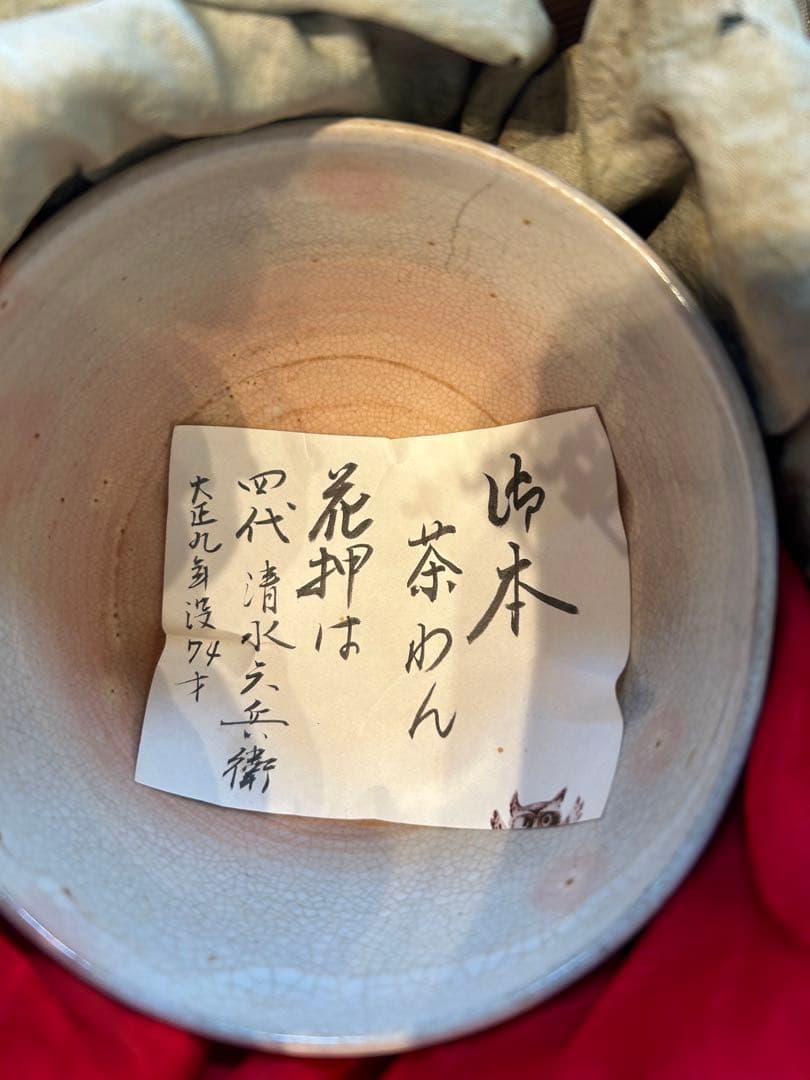 御本
茶わん
花押は
四代 清水六兵衛
大正九年没74才